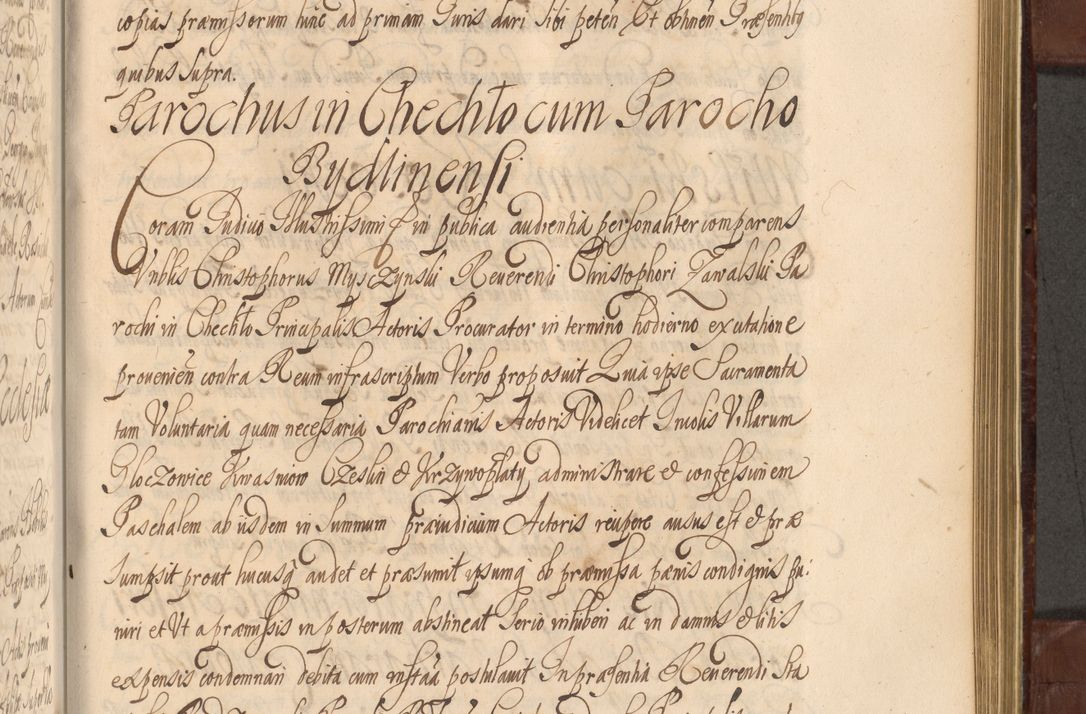 copias præmissorum hinc ad primam Juris dari sibi peten Et obtinen Præsentibus
quibus supra.
Parochus in Chechło cum Parocho
Bydlinensi
Coram Judicio Illustrissimi & in publica audientia personaliter comparens
Vnblis Christophorus Myszczynski Reuerendi Christophori Zawalski Pa
rochi in Chechło Principalis Actoris Procurator in termino hodierno ex citatione
prouenien contra Reum infrascriptum Verbo proposuit Quia ipse Sacramenta
tam Voluntaria quam necessaria Parochianis Actoris Videlicet Incolis Villarum
Kwasniow Czeslin & Krzywopłaty, administrare & confessionem
Paschalem ab iisdem in summum præiudicium Actoris recipere ausus est & præ
sumpsit prout hucusq audet et præsumit ipsumq ob præmissa pænis condignis pu:
niri et Vt a præmissis in posterum abstineat serio inhiberi ac in damnis & litis
expensis condemnari debita cum instaã postulauit In præsentia Reuerendi Sta